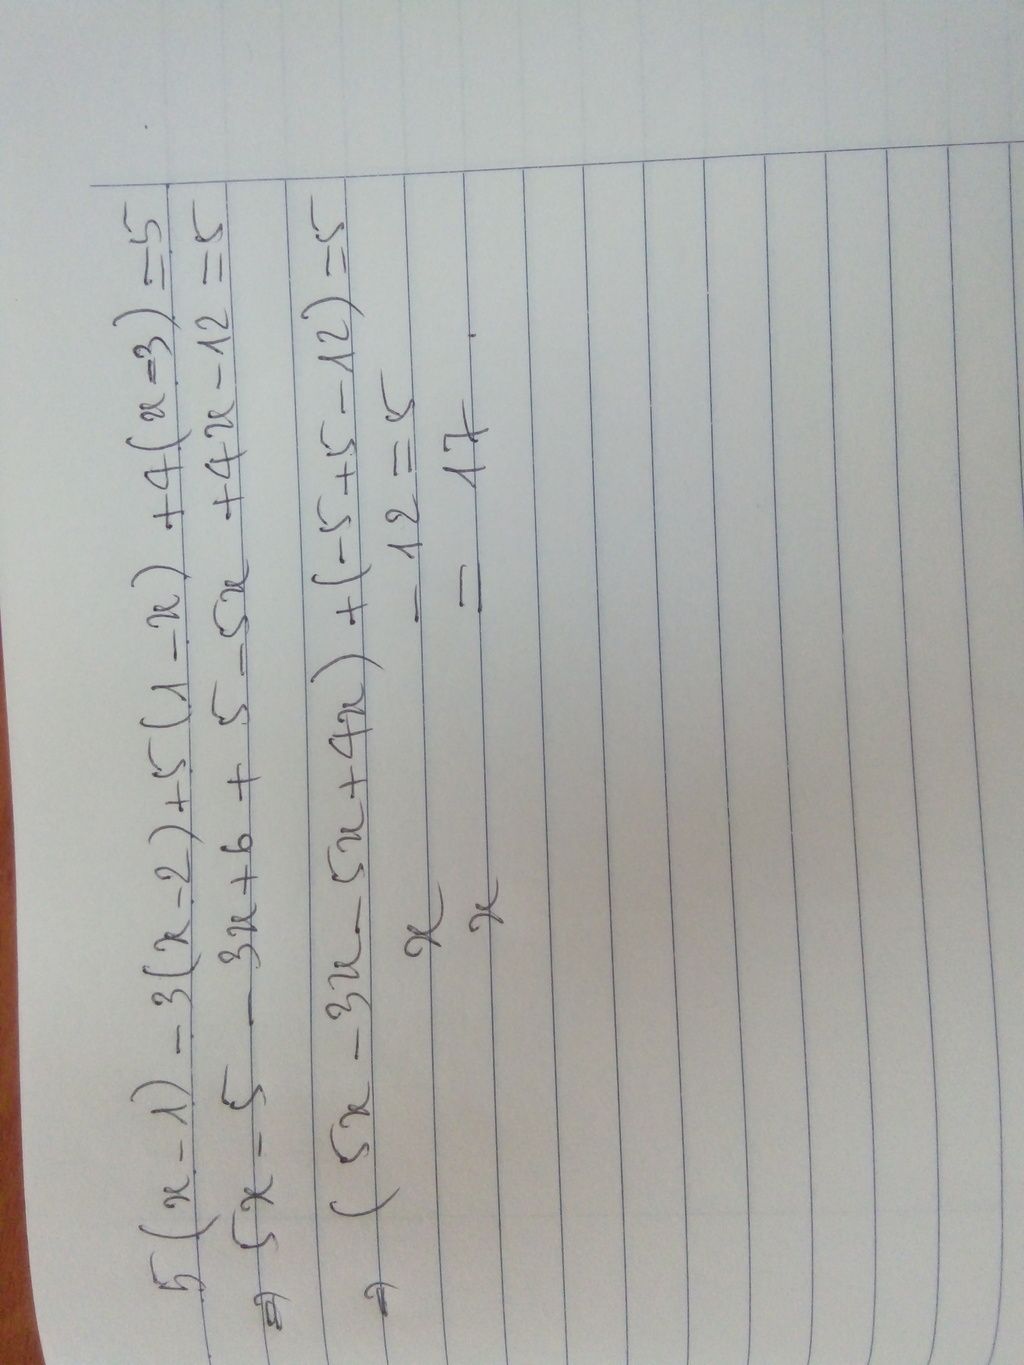 5(x-1) - 3(x-2) + 5(1-x) + 4(x-3) = 5
⇒ 5x - 5 - 3x + 6 + 5 - 5x + 4x - 12 = 5
⇒ (5x - 3x - 5x + 4x) + (-5 + 5 - 12) = 5
x - 12 = 5
x = 17.